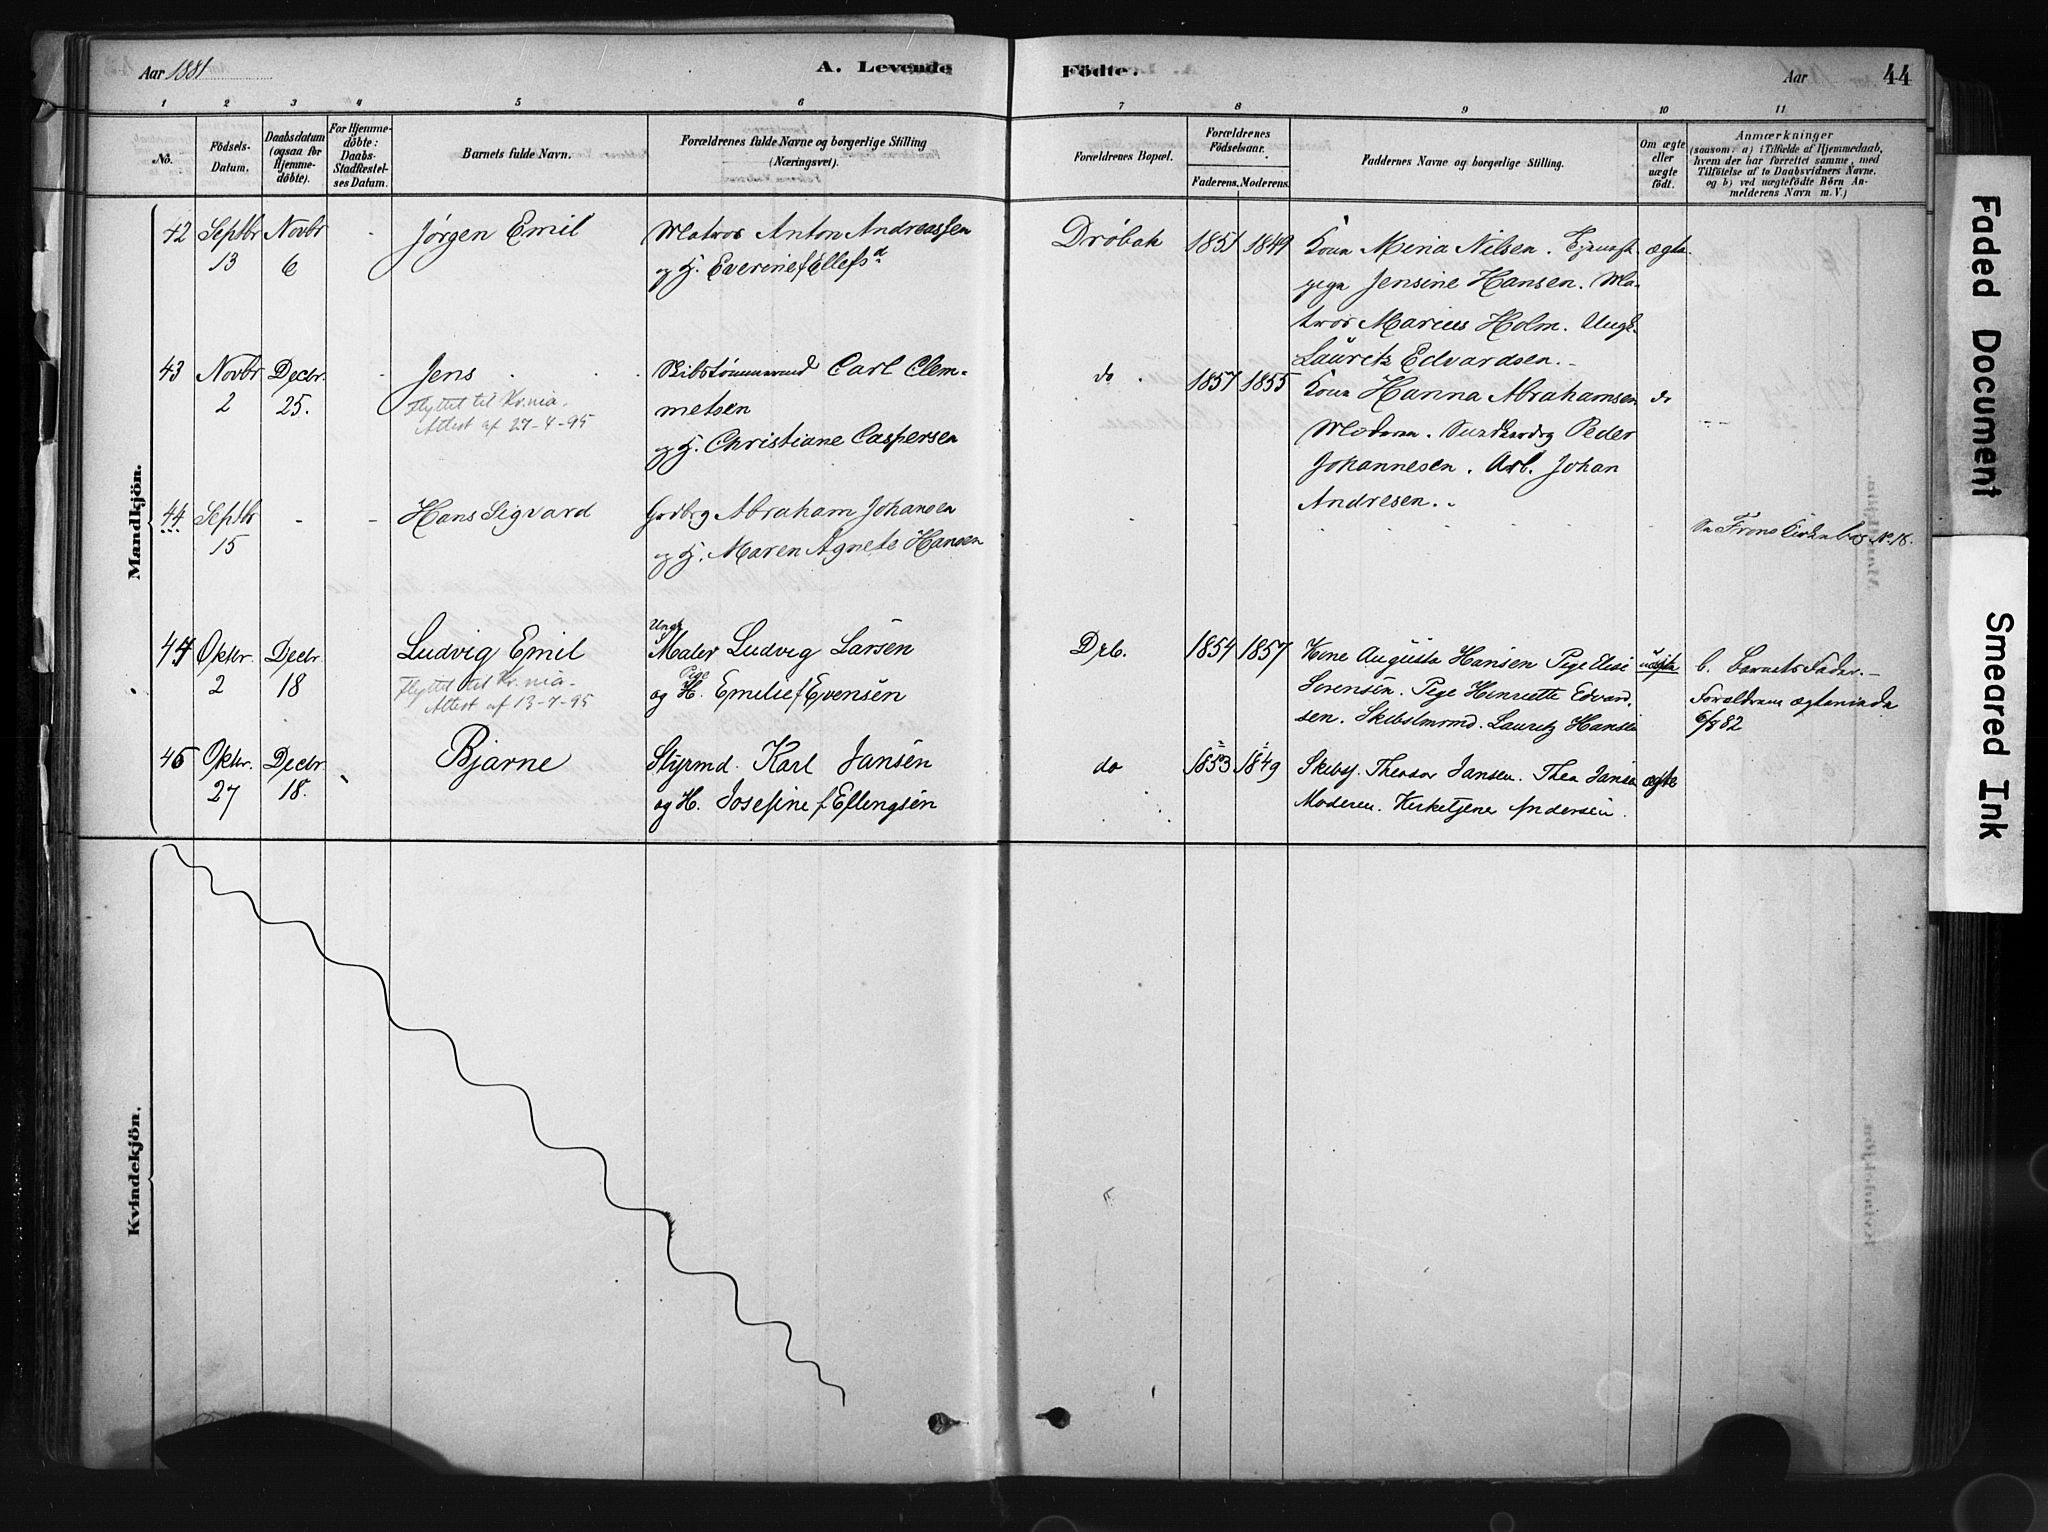 Aar 1881
A. Levende
Födte.
Aar
44
1 2 3 4 5 6 7 8 9 10 11
No.
Födsels-
Datum.
Daabsdatum
(ogsaa for
Hjemme-
döbte).
For Hjemme-
döbte:
Daabs-
Stadfæstel-
ses Datum.
Barnets fulde Navn.
Forældrenes fulde Navne og borgerlige Stilling
(Næringsvei).
Forældrenes Bopæl.
Forældrenes
Födselsaar.
Faderens. Moderens.
Faddernes Navne og borgerlige Stilling.
Om ægte
eller
uægte
födt.
Anmærkninger
(saasom: a) i Tilfælde af Hjemmedaab,
hvem der har forrettet samme, med
Tilföielse af to Daabsvidners Navne,
og b) ved uægtefödte Börn An-
melderens Navn m. V.)
Mandkjön.
42
Septbr
13
Novbr
6
Jørgen Emil
Matros Anton Andreassen
og H. Everine f Ellefsd
Drøbak
1851
1849
Kone Mina Nilsen.
Jensine Hansen. Ma-
tros Marius Holm. Ungk.
Lauretz Edvardsen.
ægte
43
Novbr
2
Decbr.
25.
Jens
Flyttet til Kr.nia.
Attest af 27-4-95
Skibstømmermd Carl Clem-
metsen
og H. Christiane Caspersen
do
1857
1855
Kone Hanna Abrahamsen
Moderen. Peder
Johannesen. Arb. Johan
Andresen.
do
44
Septbr
15
Hans Sigvard
Abraham Johansen
og H. Maren Agnete Hansen
Se Frons Kirkebog No 18.
44
Oktbr.
2
Decbr.
18
Ludvig Emil
Flyttet til Kr.nia.
Attest af 13-4-95
Ungk
Maler Ludvig Larsen
Pige
og H. Emilie f Evensen
Drb.
1854
1857
Kone Augusta Hansen Pige Elise
Sørensen. Pige Henriette Edvard-
sen. Skibstmrmd. Lauritz Hansen
uægte
b. Barnets Fader.
Forældrene ægteviede
6/8 82
45
Oktbr.
27
Decbr.
18.
Bjarne
Styrmd. Karl Jansen
og H. Josefine f Ellingsen
do
1853
1849
Skibsf. Theodor Jansen. Thea Jansen
Moderen. Kirketjener Andersen.
ægte
Kvindekjön.
Faded Document
Smeared Ink